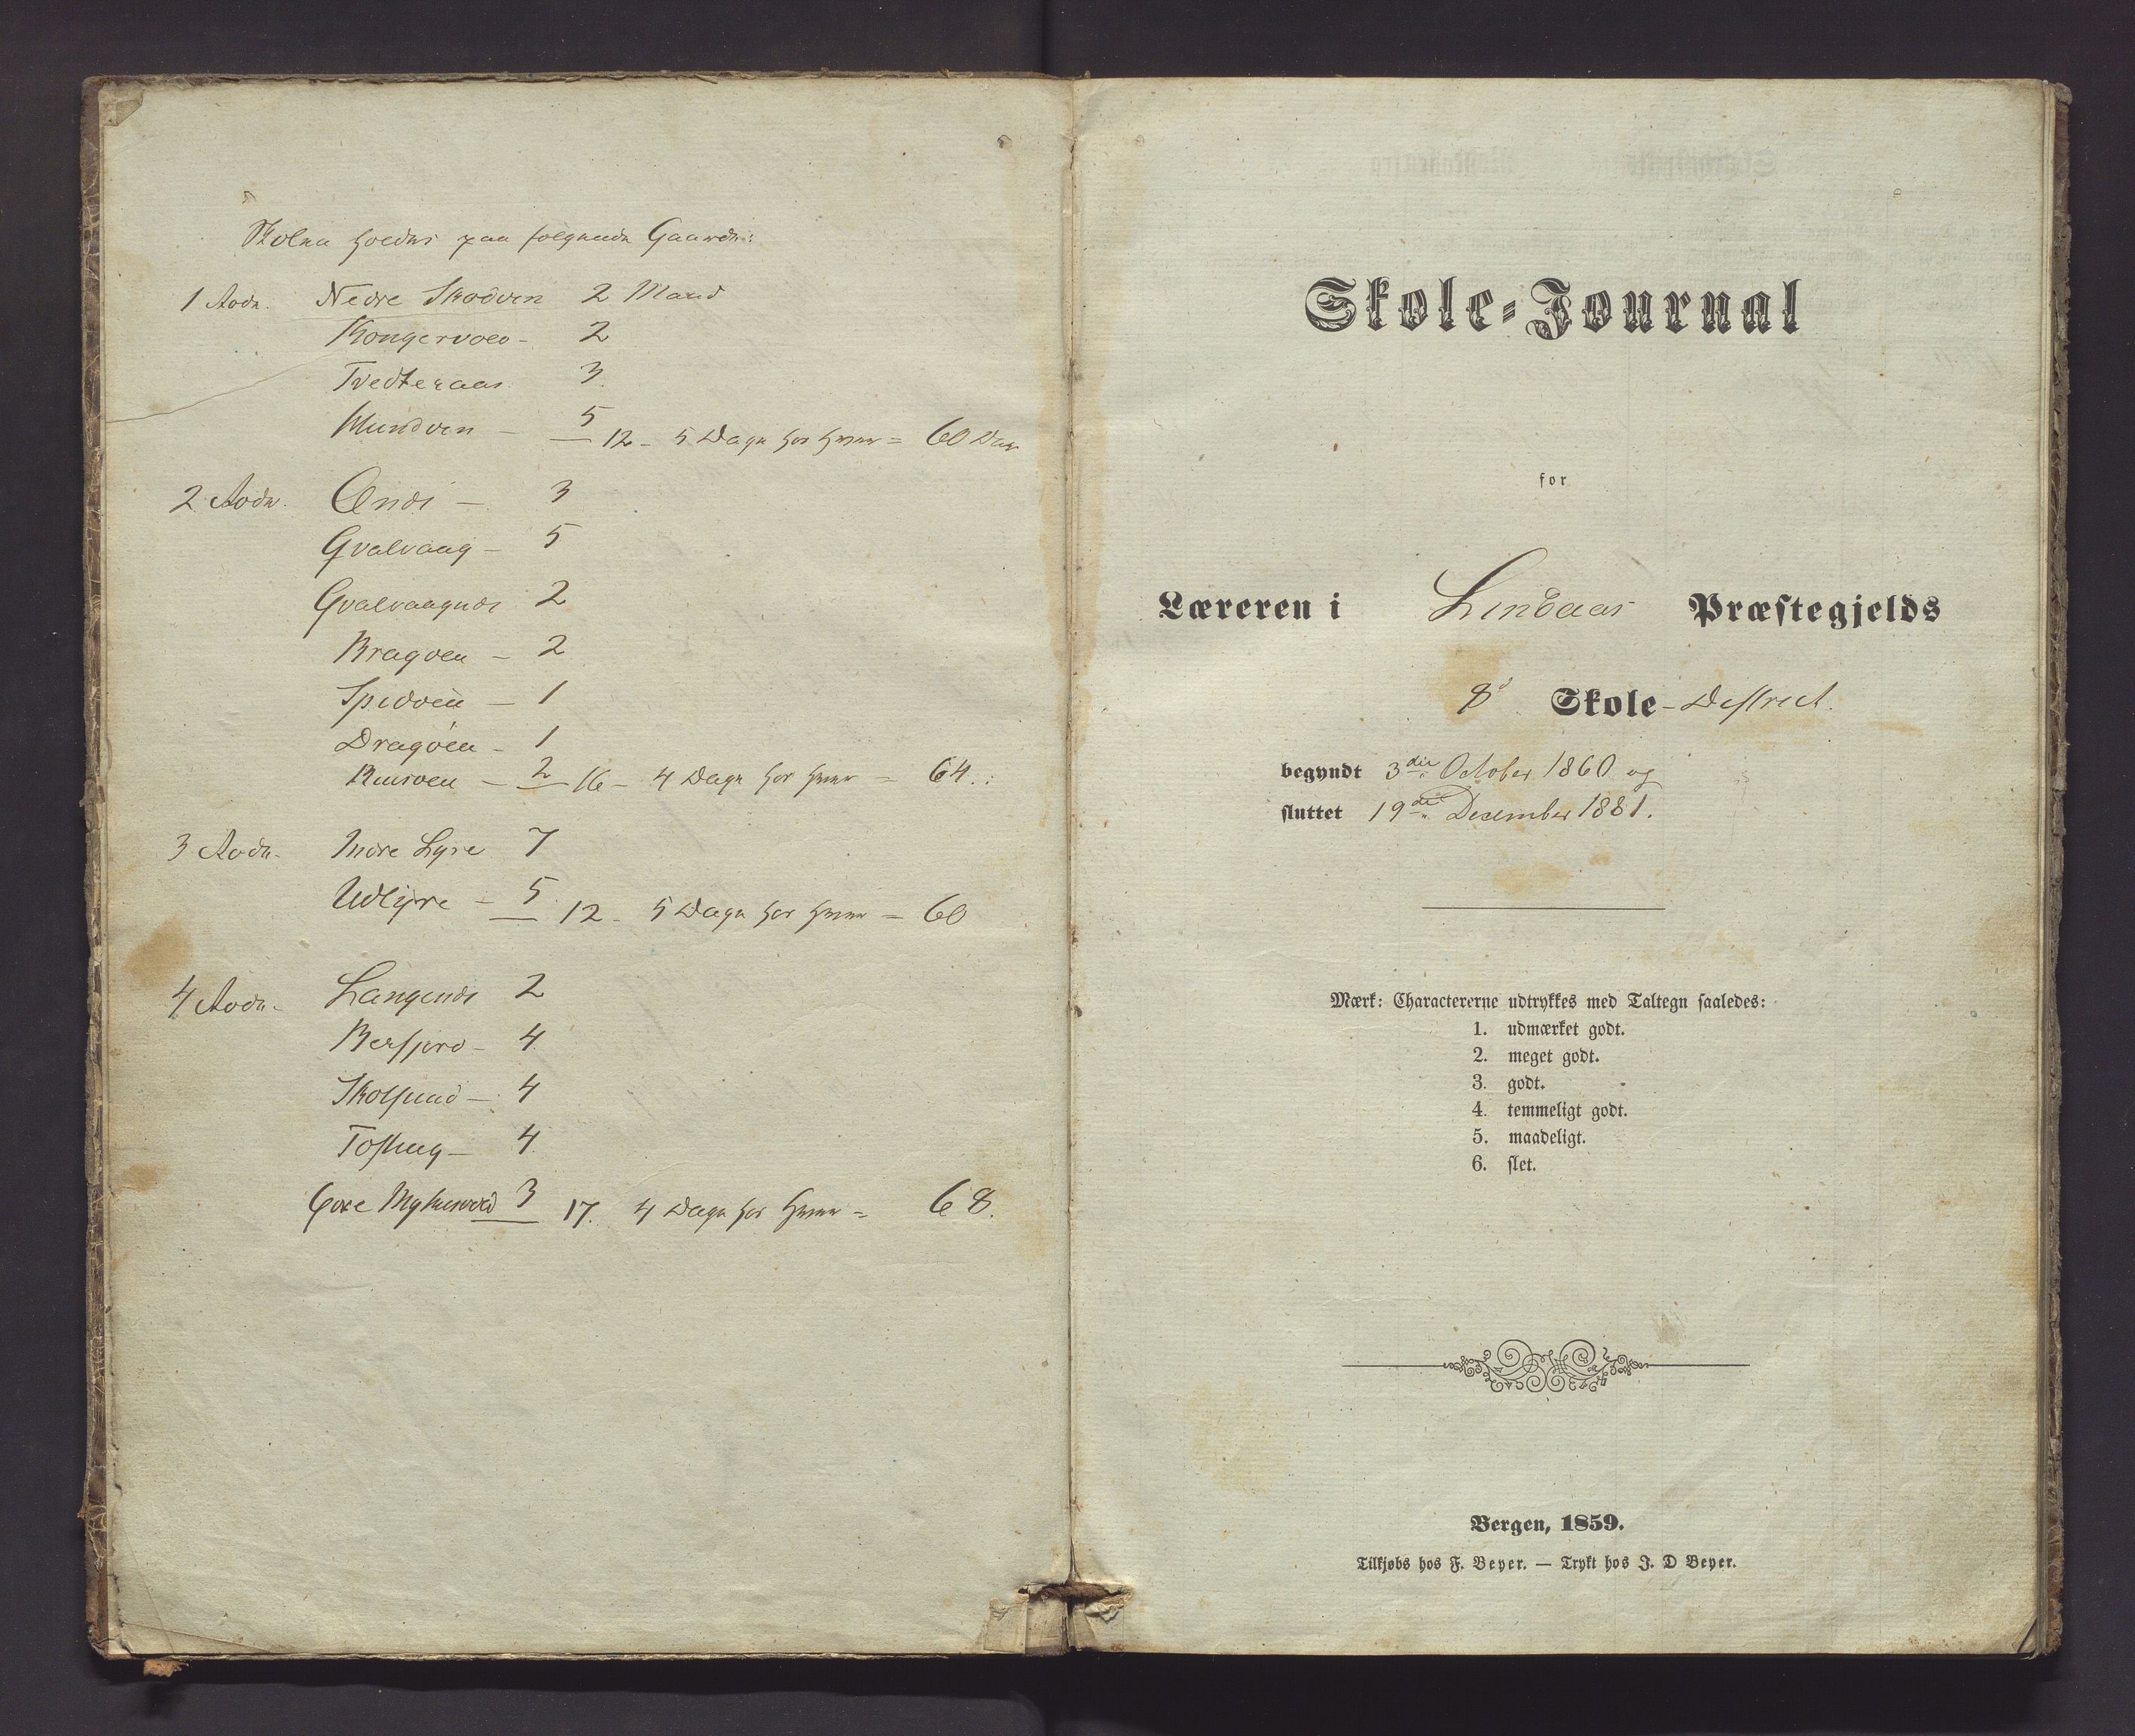 Skolen holdes paa følgende Gaarde:
1 Rode. Nedre Skodven 2 Mand
Kongervold - 2
Tvedteraas 3
Mundven - 5
12 - 5 Dage hos hver = 60 Dage
2 Rode. Öndi - 3
Qvalvaag - 5
Qvalvaagnæs 2
Bragöen - 2
Spidöen - 1
Dragöen - 1
- 2 16 - 4 Dage hos hver = 64.
3 Rode. Indre Lyre 7
Udlyre - 5
12 - 5 Dage hos hver = 60
4 Rode - Langenæs 2
- 4
- 4
- 4
3 17. 4 Dage hos hver = 68.
Skole-Journal
for
Læreren i Lindaas Præstegjelds
8d Skole-District.
begyndt 3die October 1860 og
sluttet 19de December 1881.
Mærk: Charactererne udtrykkes med Taltegn saaledes:
1. udmærket godt.
2. meget godt.
3. godt.
4. temmeligt godt.
5. maadeligt.
6. slet.
Bergen, 1859.
Tilkjøbs hos F. Beyer. — Trykt hos J. D Beyer.